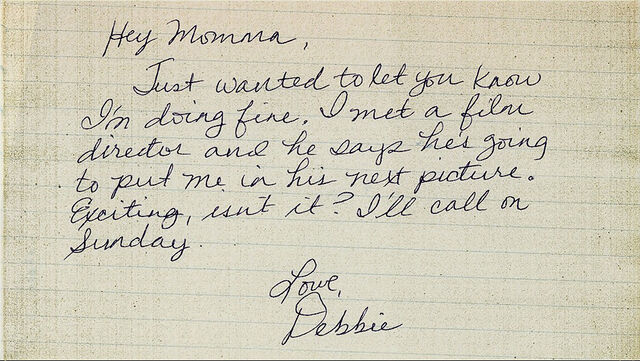 Hey Momma,
Just wanted to let you know
I'm doing fine. I met a film
director and he says he's going
to put me in his next picture.
Exciting, isn't it? I'll call on
Sunday.
Love,
Debbie